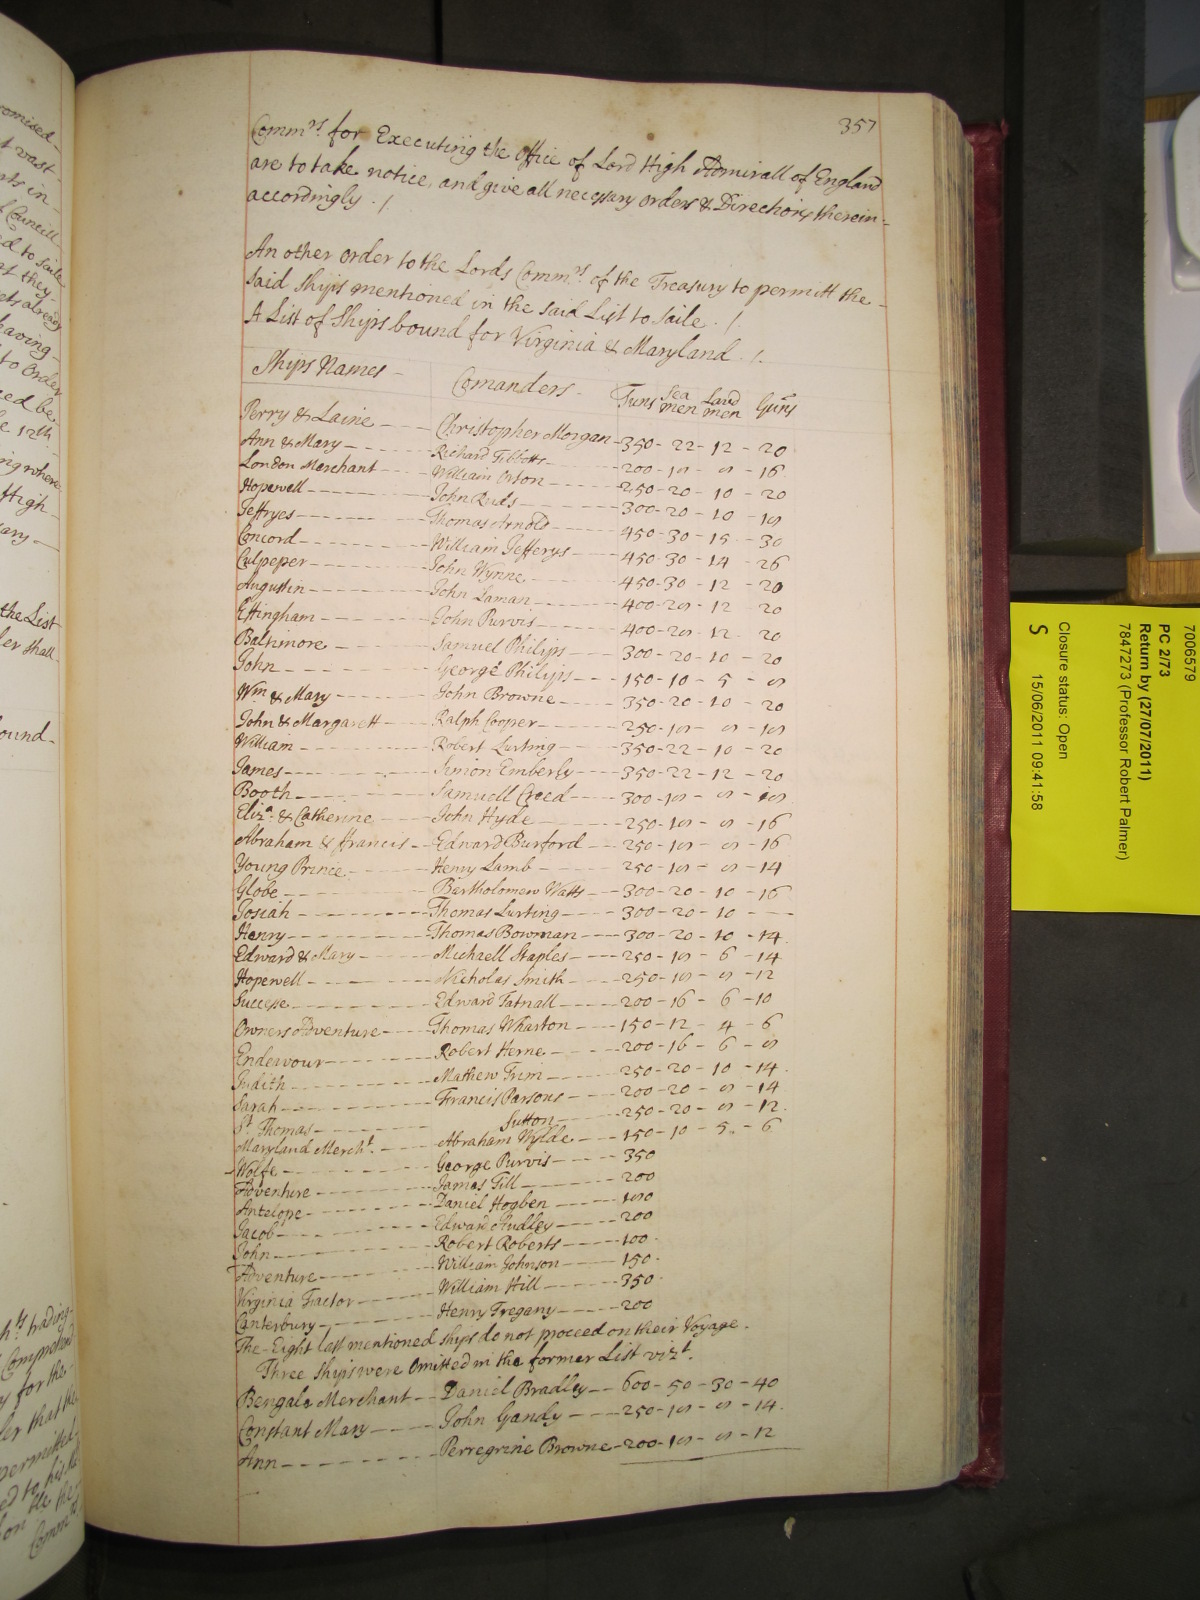 357
Commrs for Executing the Office of Lord High Admirall of England
are to take notice, and give all necessary orders & Directions therein-
accordingly ./.
An other order to the Lords Commrs of the Treasury to permitt the-
said Ships mentioned in the said List to saile ./.
A List of Ships bound for Virginia & Maryland ./.
Ships Names - Comanders. Tuns Sea men Land men Guns
Perry & Laine - Christopher Morgan - 350 - 22 - 12 - 20
Ann & Mary - Richard Tibbotts - 200 - 18 - 8 - 16
London Marchant - William Orton - 250 - 20 - 10 - 20
Hopewell - John Ruds - 300 - 20 - 10 - 18
Jeffryes - Thomas Arnold - 450 - 30 - 15 - 30
Concord - William Jefferys - 450 - 30 - 14 - 26
Culpeper - John Wynne - 450 - 30 - 12 - 20
Augustin - John Laman - 400 - 28 - 12 20
Effingham - John Purvis - 400 - 28 - 12 - 20
Baltimore - Samuel Philips - 300 - 20 - 10 - 20
John - George Philips - 150 - 10 - 5 - 8
Wm & Mary - John Browne - 350 - 20 - 10 - 20
John & Margarett - Ralph Cooper - 250 - 18 - 8 - 18
William - Robert Lurting - 350 - 22 - 10 - 20
James - Simon Emberly - 350 - 22 - 12 - 20
Booth - Samuell Creed - 300 - 18 - 8 - 18
Eliza. & Catherine - John Hyde - 250 - 18 - 8 - 16
Abraham & Francis - Edward Burford - 250 - 18 - 8 - 16
Young Prince - Henry Lamb - 250 - 18 - 8 - 14
Globe - Bartholomew Watts - 300 - 20 - 10 - 16
Josiah - Thomas Lurting - 300 - 20 - 10 - —
Henry - Thomas Bowman - 300 - 20 - 10 - 14
Edward & Mary - Michaell Staples - 250 - 18 - 6 - 14
Hopewell - Nicholas Smith - 250 - 18 - 8 - 12
Successe - Edward Tatnall - 200 - 16 - 6 - 10
Owners Adventure - Thomas Wharton - 150 - 12 - 4 - 6
Endevour - Robert Herne - 200 - 16 - 6 - 8
Judith - Mathew Trim - 250 - 20 - 10 - 14
Sarah - Francis Parsons - 200 - 20 - 8 - 14
St Thomas - Sutton - 250 - 20 - 8 - 12
Maryland Mercht. - Abraham Wylde - 150 - 10 - 5 - 6
Wolfe - George Purvis - 350
Adventure - James Till - 200
Antelope - Daniel Hogben - 180
Jacob - Edward Audley - 200
John - Robert Roberts - 100
Adventure - William Johnson - 150
Virginia Factor - William Hill - 350
Canterbury - Henry Tregany - 200
The Eight last mentioned Ships do not proceed on their Voyage.
Three Ships were Omitted in the former List vizt.
Bengala Merchant - Daniel Bradley - 600 - 50 - 30 - 40
Constant Mary - John Gandy - 250 - 18 - 8 - 14
Ann - Perregrine Browne - 200 - 18 - 8 - 12
7006579
PC 2/73
Return by (27/07/2011)
7847273 (Professor Robert Palmer)
Closure status: Open
S 15/06/2011 09:41:58